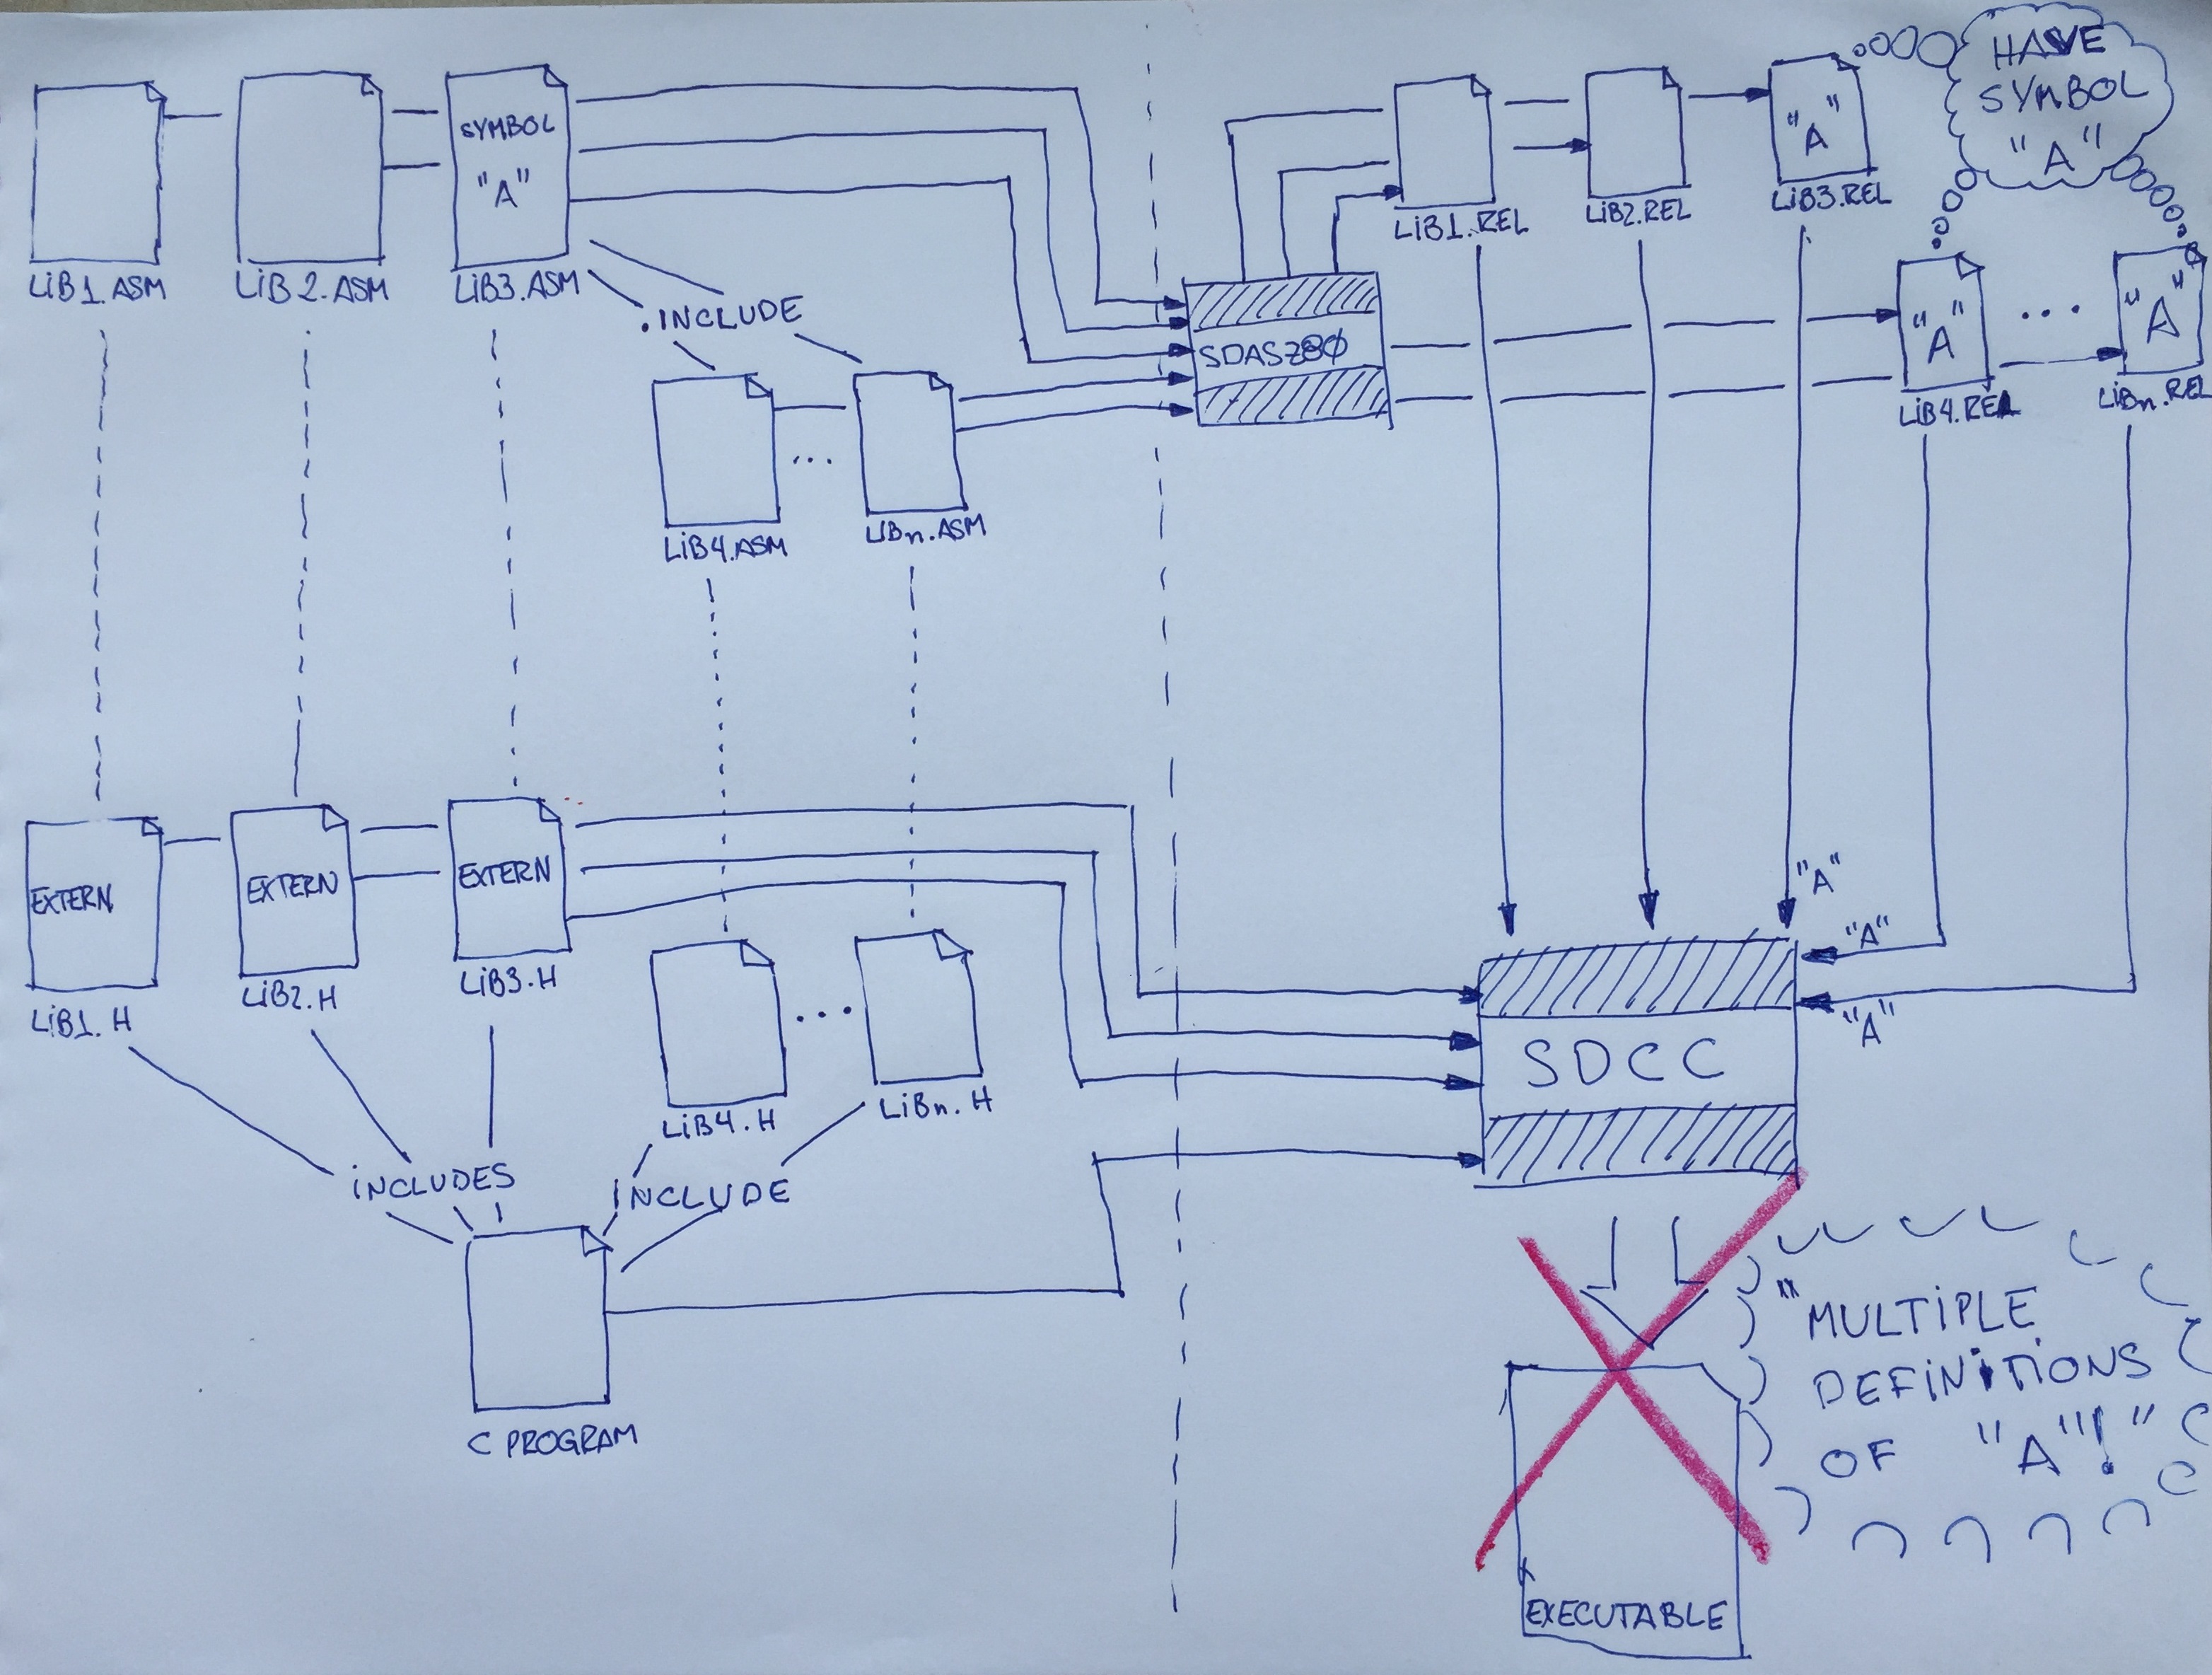 HAVE
SYMBOL
"A"
SYMBOL
"A"
LiB1.ASM
LiB2.ASM
LiB3.ASM
.INCLUDE
LiB4.ASM
...
LiBn.ASM
SDASZ80
LiB1.REL
LiB2.REL
"A"
LiB3.REL
"A"
LiB4.REL
...
"A"
LiBn.REL
EXTERN
LiB1.H
EXTERN
LiB2.H
EXTERN
LiB3.H
LiB4.H
...
LiBn.H
iNCLUDES
INCLUDE
C PROGRAM
"A"
"A"
"A"
SDCC
"MULTiPLE
DEFiNiTiONS
OF "A"!"
EXECUTABLE